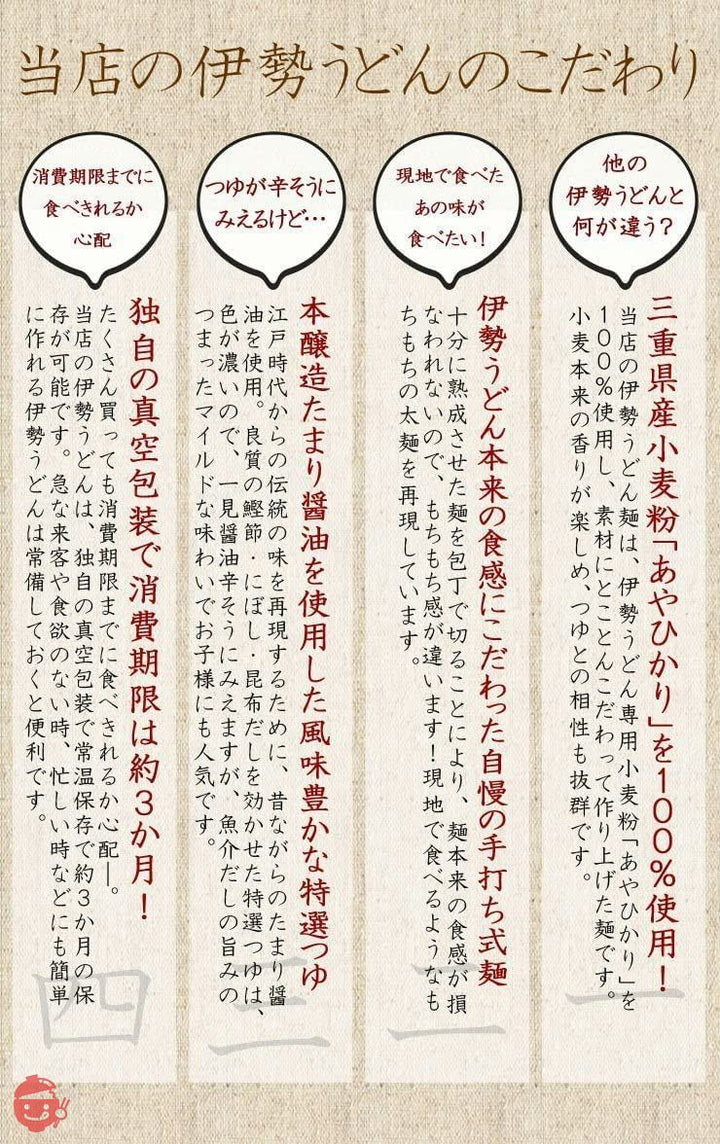 当店の伊勢うどんのこだわり
他の
伊勢うどんと
何が違う?
三重県産小麦粉「あやひかり」を100%使用!
当店の伊勢うどん麺は、伊勢うどん専用小麦粉「あやひかり」を
100%使用し、素材にとことんこだわって作り上げた麺です。
小麦本来の香りが楽しめ、つゆとの相性も抜群です。
一
現地で食べた
あの味が
食べたい!
伊勢うどん本来の食感にこだわった自慢の手打ち式麺
十分に熟成させた麺を包丁で切ることにより、麺本来の食感が損
なわれないので、もちもち感が違います!現地で食べるようなも
ちもちの太麺を再現しています。
二
つゆが辛そうに
みえるけど…
本醸造たまり醤油を使用した風味豊かな特選つゆ
江戸時代からの伝統の味を再現するために、昔ながらのたまり醤
油を使用。良質の鰹節・にぼし・昆布だしを効かせた特選つゆは、
色が濃いので、一見醤油辛そうにみえますが、魚介だしの旨みの
つまったマイルドな味わいでお子様にも人気です。
三
消費期限までに
食べきれるか
心配
独自の真空包装で消費期限は約3か月!
たくさん買っても消費期限までに食べきれるか心配―。
当店の伊勢うどんは、独自の真空包装で常温保存で約3か月の保
存が可能です。急な来客や食欲のない時、忙しい時などにも簡単
に作れる伊勢うどんは常備しておくと便利です。
四